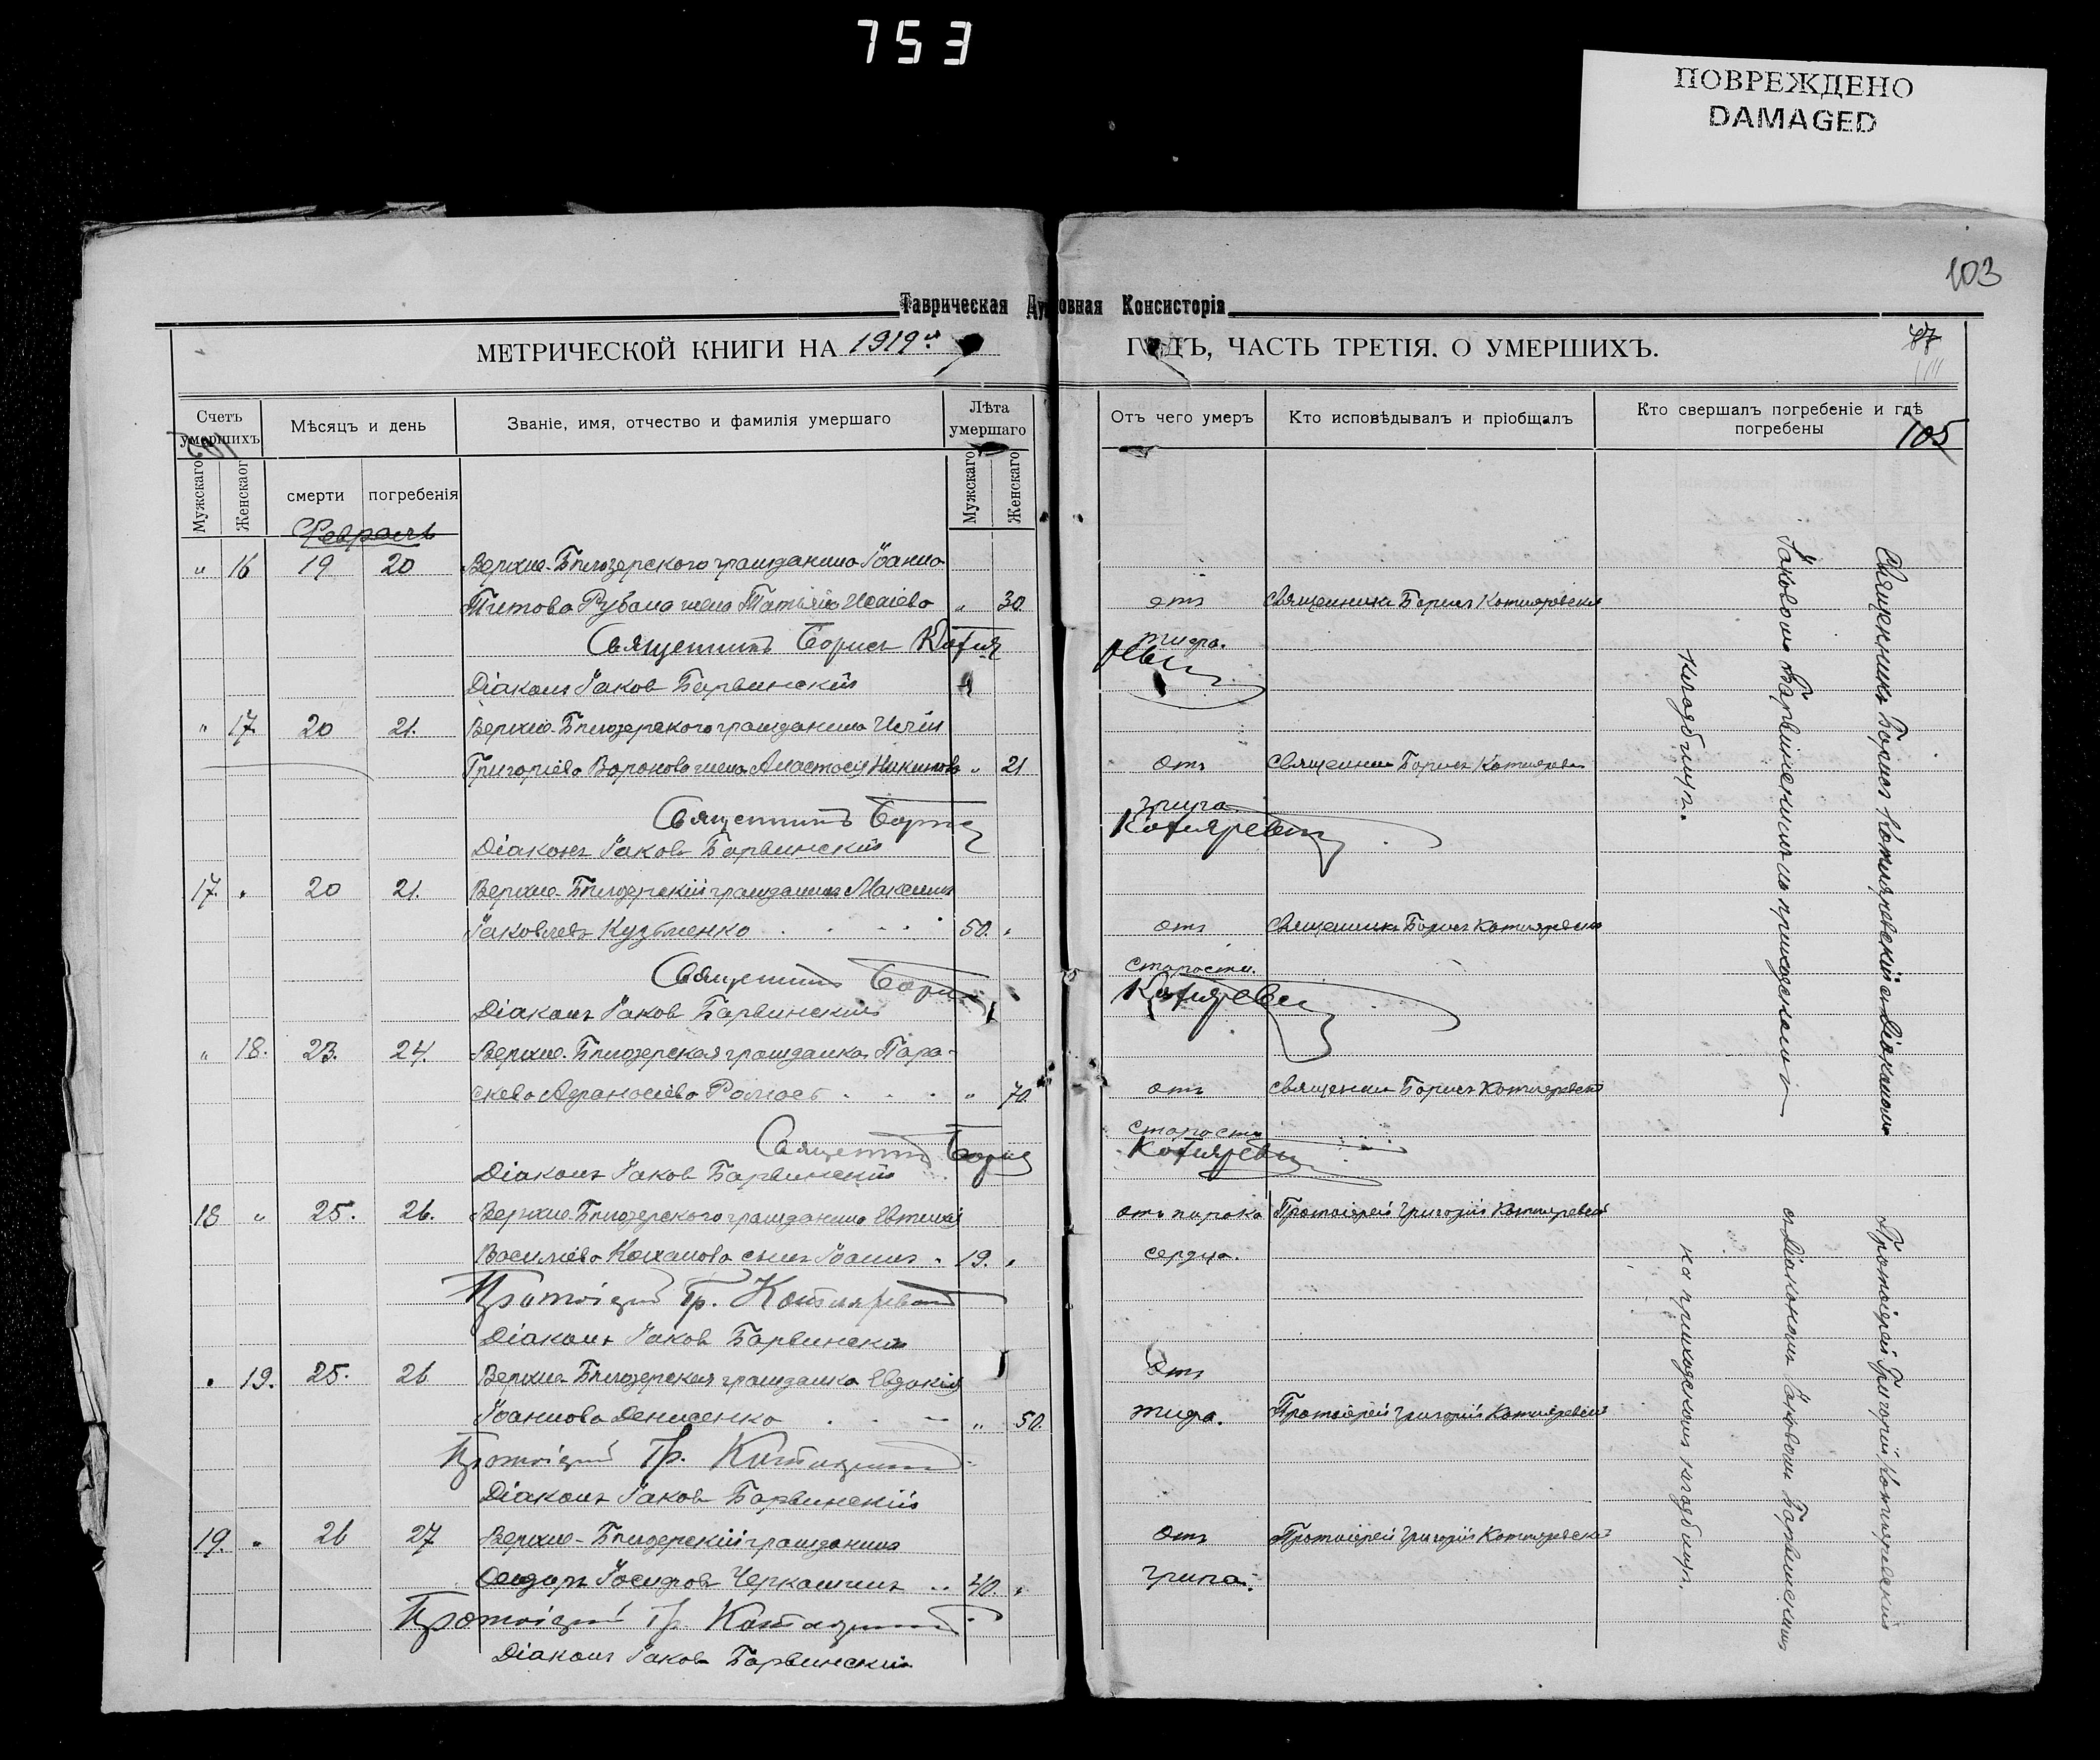 753
ПОВРЕЖДЕНО
DAMAGED
103
Таврическая Духовная Консисторія
МЕТРИЧЕСКОЙ КНИГИ НА 1919й ГОДЪ, ЧАСТЬ ТРЕТІЯ, О УМЕРШИХЪ.
Счетъ умершихъ
Мѣсяцъ и день
Званіе, имя, отчество и фамилія умершаго
Лѣта умершаго
Отъ чего умеръ
Кто исповѣдывалъ и пріобщалъ
Кто свершалъ погребеніе и гдѣ погребены
105
Мужскаго
Женскаго
смерти
погребенія
Мужскаго
Женскаго
Февраль
" 16 19 20 Верхне-Бѣлозерского гражданина Іоанна
Титова Рубана жена Татьяна Исаіева " 30 отъ Священникъ Борисъ Котляревскій
Священникъ Борисъ Котляревскій тифа.
Діаконъ Іаковъ Барвинскій
" 17 20 21. Верхне-Бѣлозерского гражданина
Григоріева Воронова жена Анастасія " 21 отъ Священникъ Борисъ Котляревскій
грипа.
Священникъ Борисъ Котляревскій
Діаконъ Іаковъ Барвинскій
17. " 20 21. Верхне-Бѣлозерскій гражданинъ Максимъ
Іаковлевъ Кузьменко 50. " отъ Священникъ Борисъ Котляревскій
старости.
Священникъ Борисъ Котляревскій
Діаконъ Іаковъ Барвинскій
" 18. 23. 24. Верхне-Бѣлозерская гражданка Пара-
скева Афанасіева " 70. отъ Священникъ Борисъ Котляревскій
старости
Священникъ Борисъ Котляревскій
Діаконъ Іаковъ Барвинскій
18 " 25. 26. Верхне-Бѣлозерского гражданина Евтихія отъ порока Протоіерей Григорій Котляревскій
Василіева сынъ Іоаннъ 19. " сердца.
Протоіерей Гр. Котляревскій
Діаконъ Іаковъ Барвинскій
" 19. 25. 26 Верхне-Бѣлозерская гражданка Евдокія отъ
Іоаннова Денисенко " 50. тифа. Протоіерей Григорій Котляревскій
Протоіерей Гр. Котляревскій
Діаконъ Іаковъ Барвинскій
19. " 26 27 Верхне-Бѣлозерскій гражданинъ отъ Протоіерей Григорій Котляревскій
Іосифовъ Черкашинъ 40. " грипа.
Протоіерей Гр. Котляревскій
Діаконъ Іаковъ Барвинскій
Священникъ Борисъ Котляревскій съ Діакономъ
Іаковомъ Барвинскимъ на приходскомъ
кладбищѣ.
Протоіерей Григорій Котляревскій
съ Діакономъ Іаковомъ Барвинскимъ
на приходскомъ кладбищѣ.